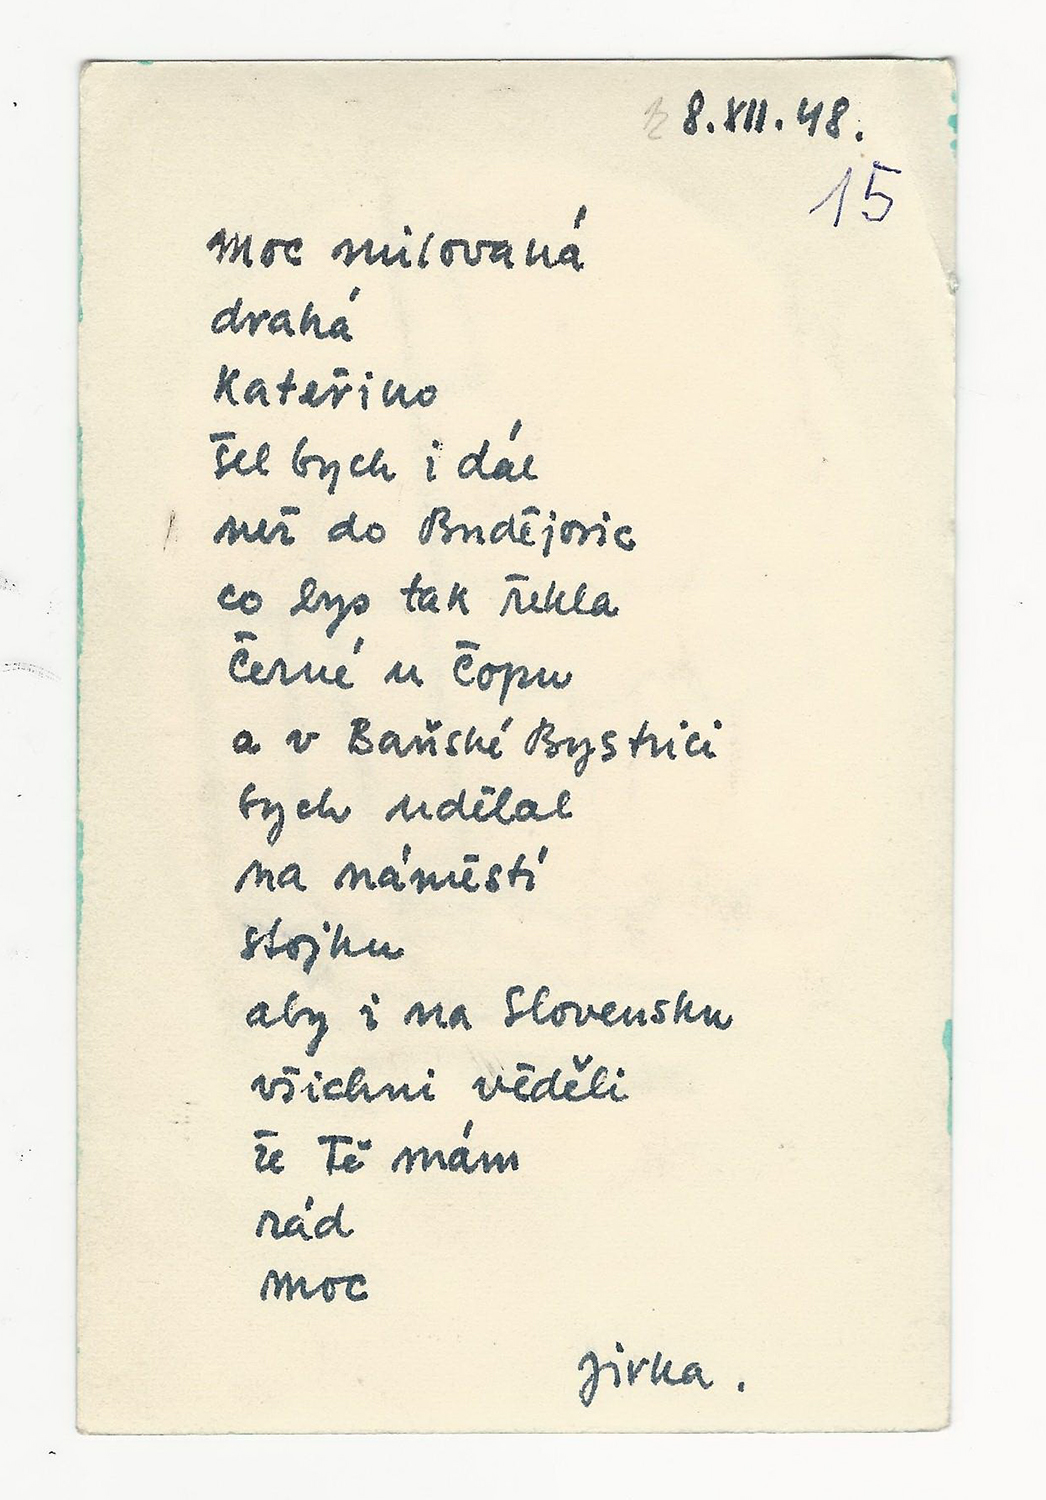 8.XII.48.
15
Moc milovaná
drahá
Kateřino
šel bych i dál
než do Budějovic
co bys tak řekla
Černé u Čopu
a v Baňské Bystrici
bych udělal
na náměstí
stojku
aby i na Slovensku
všichni věděli
že Tě mám
rád
Moc
Jirka.